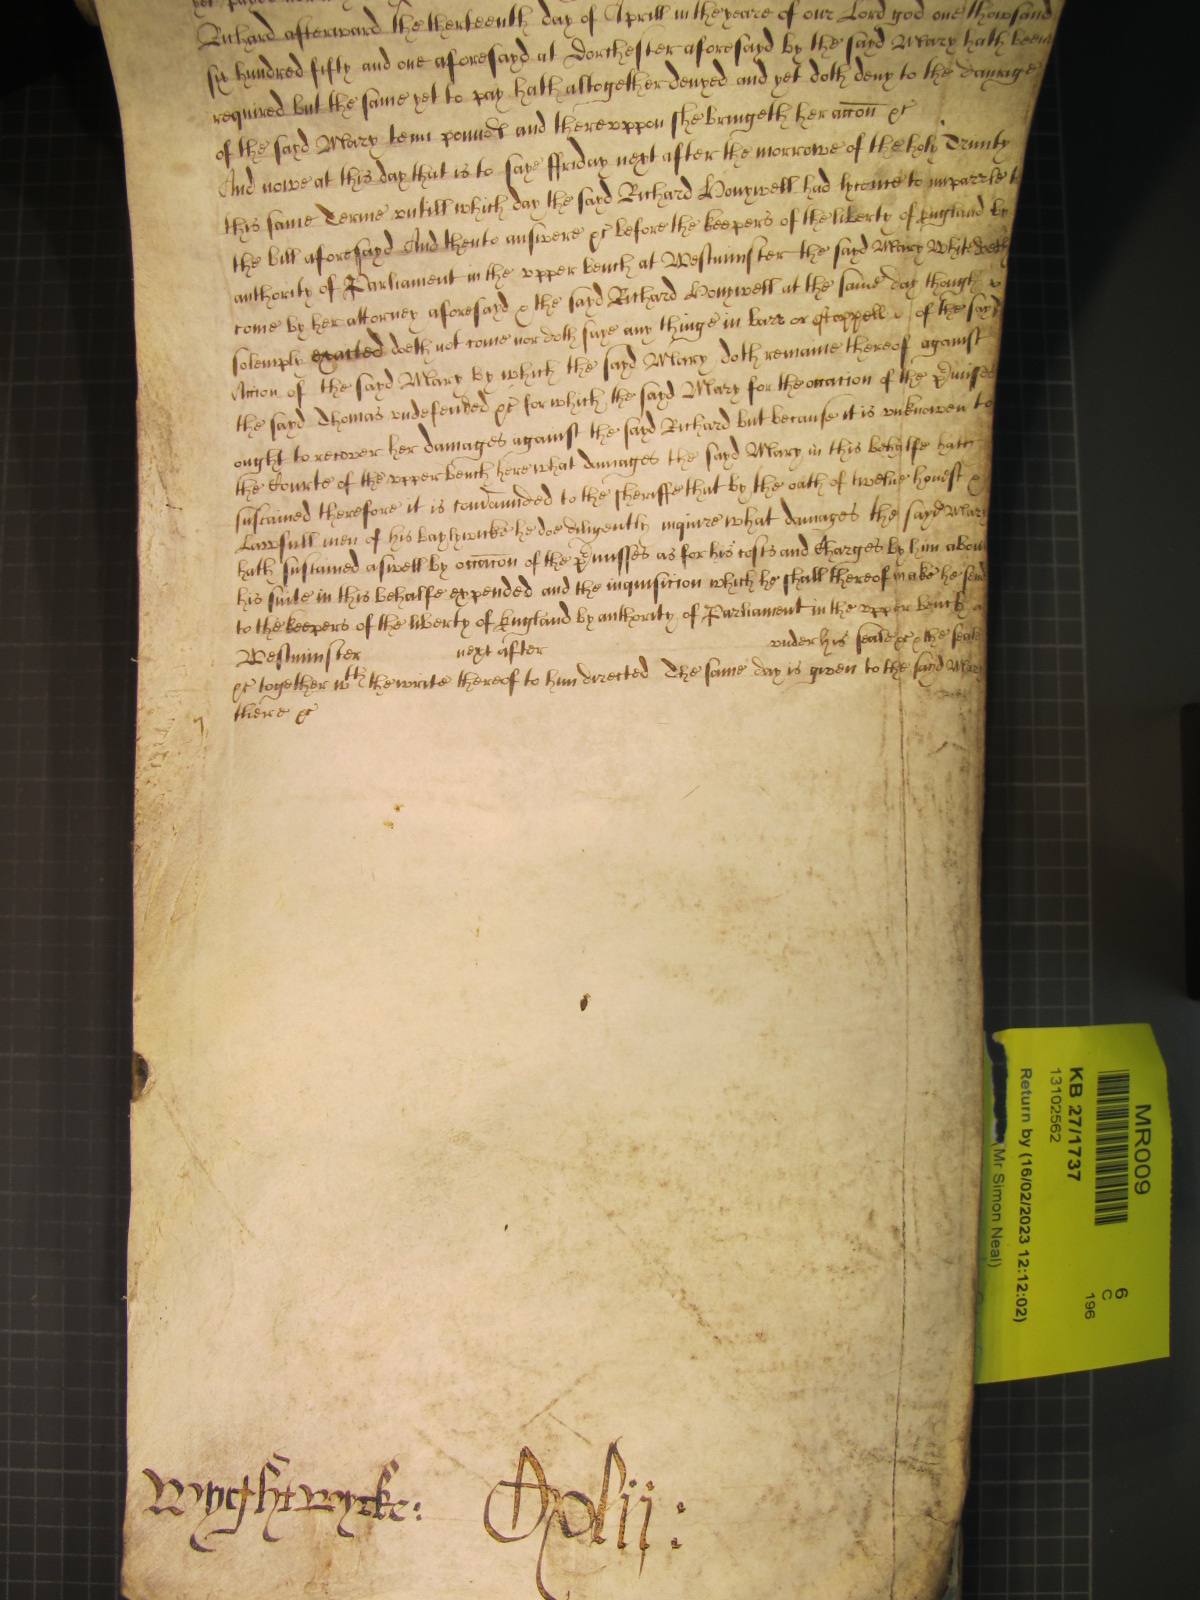 Richard afterward the therteenth day of Aprill in the yeare of our Lord god one thowsand
six hundred fifty and one aforesayd at Dorchester aforesayd by the sayd Mary hath been
required but the same yet to pay hath altogether denyed and yet doth deny to the damage
of the sayd Mary tenn pounds and thereuppon she bringeth her accon &c
And nowe at this day that is to saye ffriday next after the morrowe of the holy Trinity
this same Terme untill which day the sayd Richard Honywell had lycence to imparle to
the bill aforesayd And then to answere &c before the keepers of the liberty of England by
authority of Parliament in the upper bench at Westminster the sayd Mary White doeth
come by her attorney aforesayd & the sayd Richard Honywell at the same day though
solemply exacted doeth not come nor doth saye any thinge in barr or Estoppell of the sayd
Action of the sayd Mary by which the sayd Mary doth remaine thereof against
the sayd Thomas undefended &c for which the sayd Mary for the occation of the p̄misses
ought to recover her damages against the sayd Richard but because it is unknowen to
the Courte of the upper bench here what damages the sayd Mary in this behalfe hath
sustained therefore it is com̄aunded to the sheriffe that by the oath of twelve honest &
Lawfull men of his baylywicke he doe diligently inquire what damages the sayd Mary
hath sustained aswell by occacon of the p̄misses as for his costs and Charges by him about
his suite in this behalfe expended and the inquisicion which he shall thereof make he send
to the keepers of the liberty of England by authority of Parliament in the upper bench a
Westminster next after under his seale &c & the seale
&c together wth the write thereof to him directed The same day is given to the sayd Mary
there &c
Wyghtwycke:
xlii:
MR009
KB 27/1737
13102562
Return by (16/02/2023 12:12:02)
(Mr Simon Neal)
6
C
196